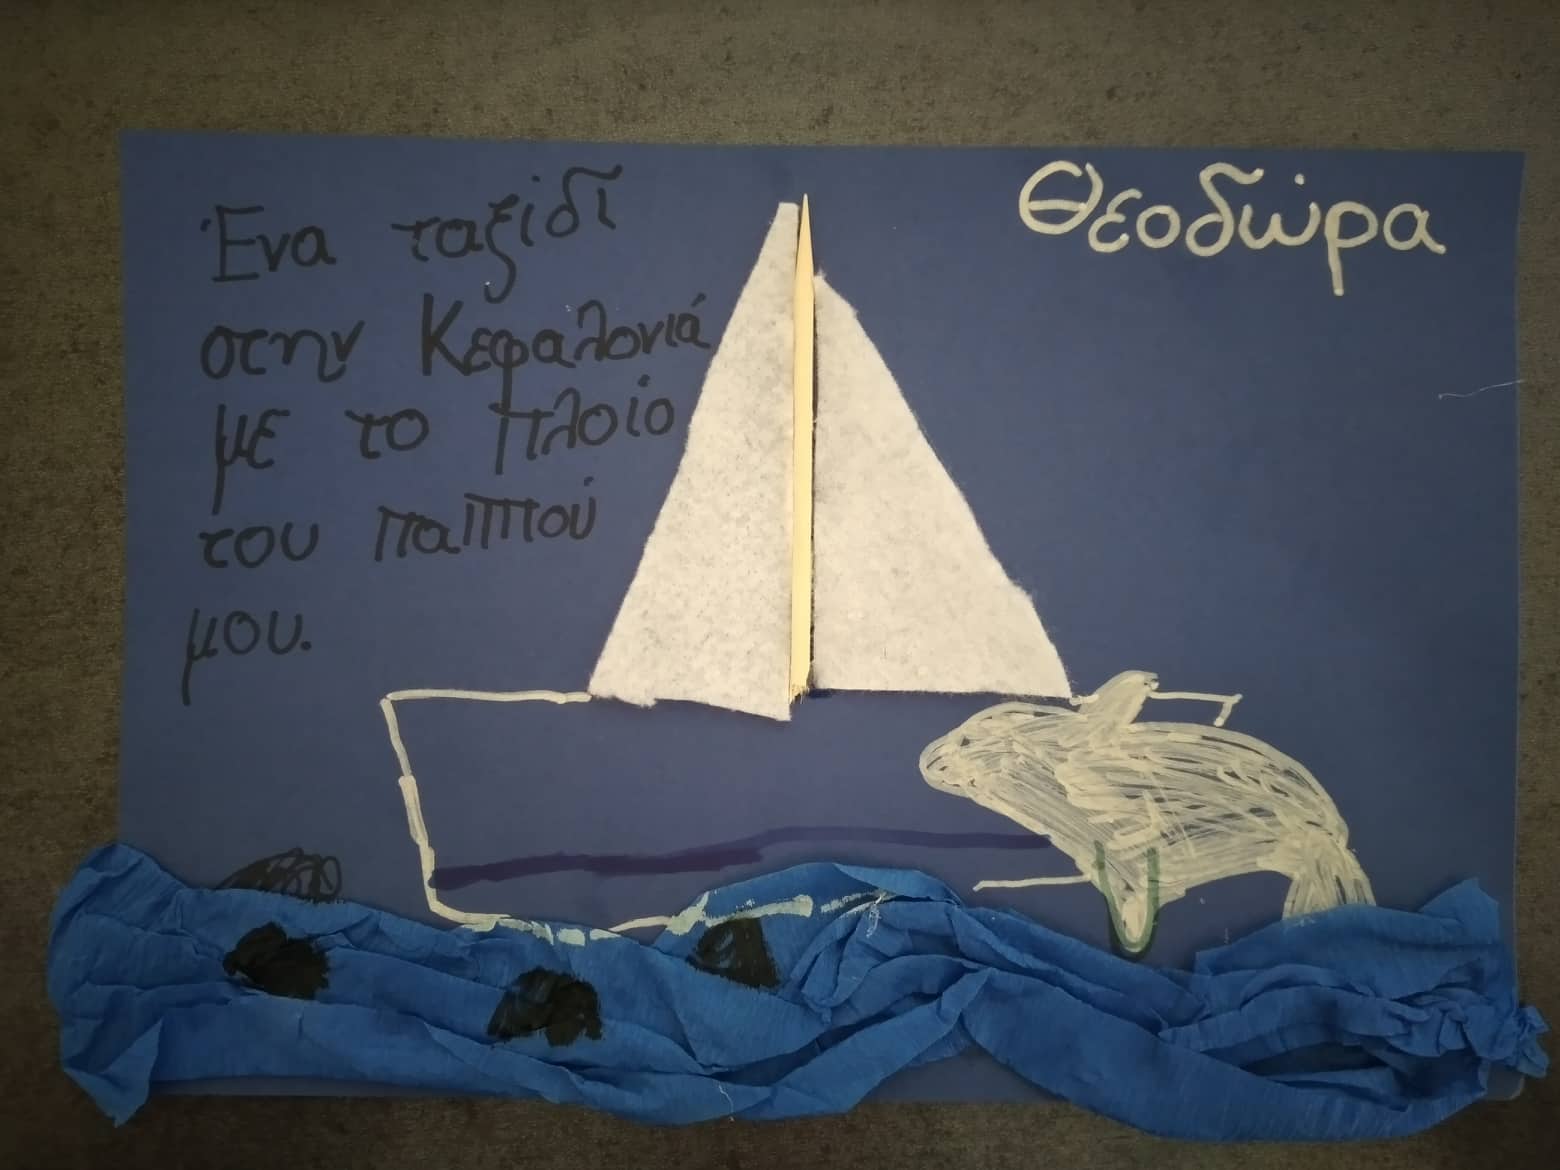 Ένα ταξίδι
στην Κεφαλονιά
με το πλοίο
του παππού
μου.
Θεοδώρα